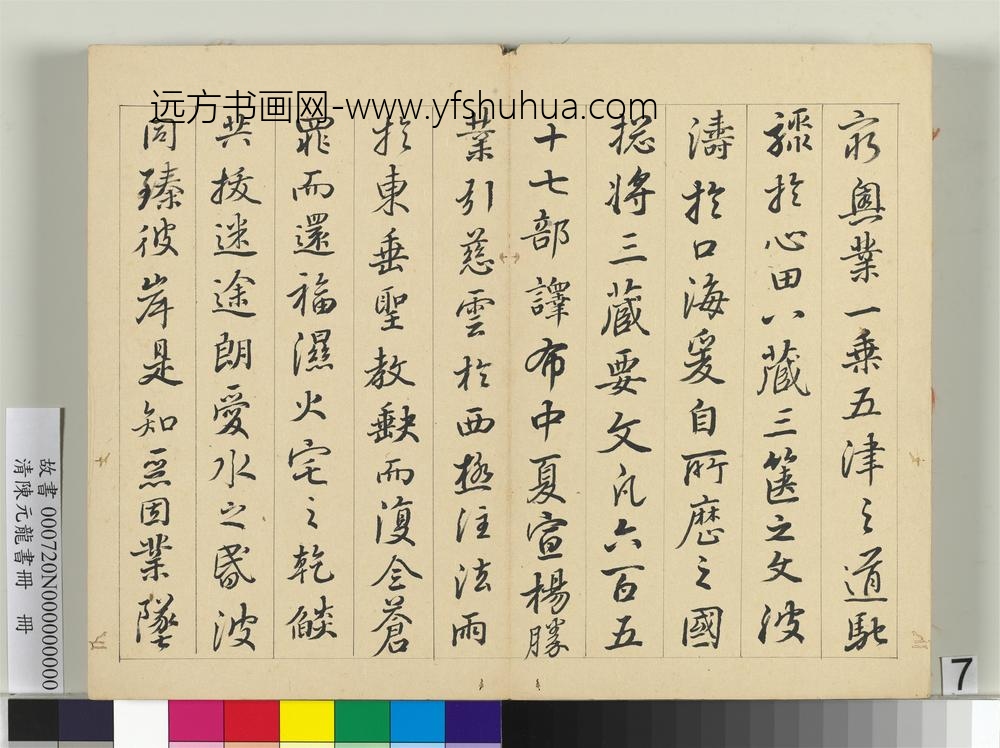 远方书画网-www.yfshuhua.com
窮奧業一乗五津之道馳
驟於心田八蔵三篋之文波
濤於口海爰自所歷之國
揔將三蔵要文凡六百五
十七部譯布中夏宣楊勝
業引慈雲於西極注法雨
於東垂聖教缺而復全蒼
罪而還福濕火宅之乾燄
共拔迷途朗愛水之昏波
同臻彼岸是知惡因業墜
故書 000720N000000000
清陳元龍書冊 冊
7